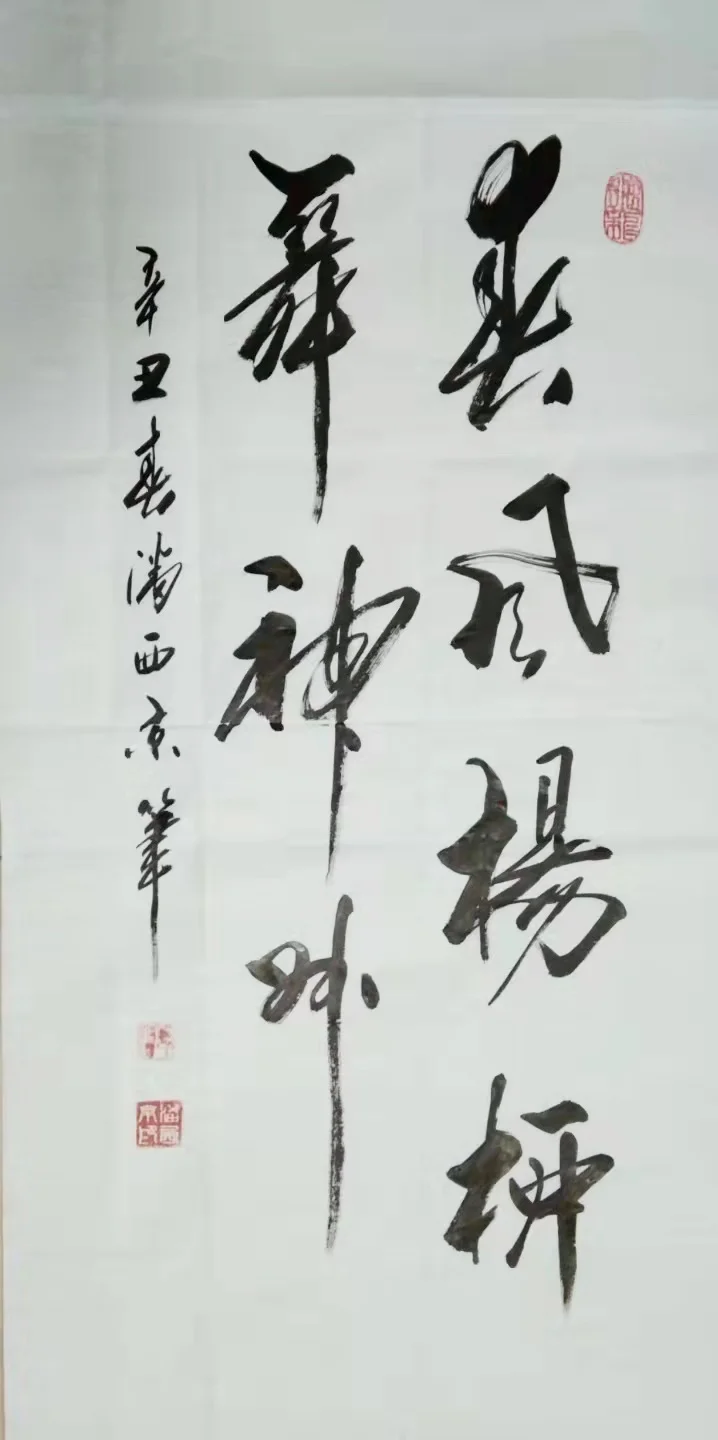 春风楊柳
舞神州
辛丑春潘西京筆